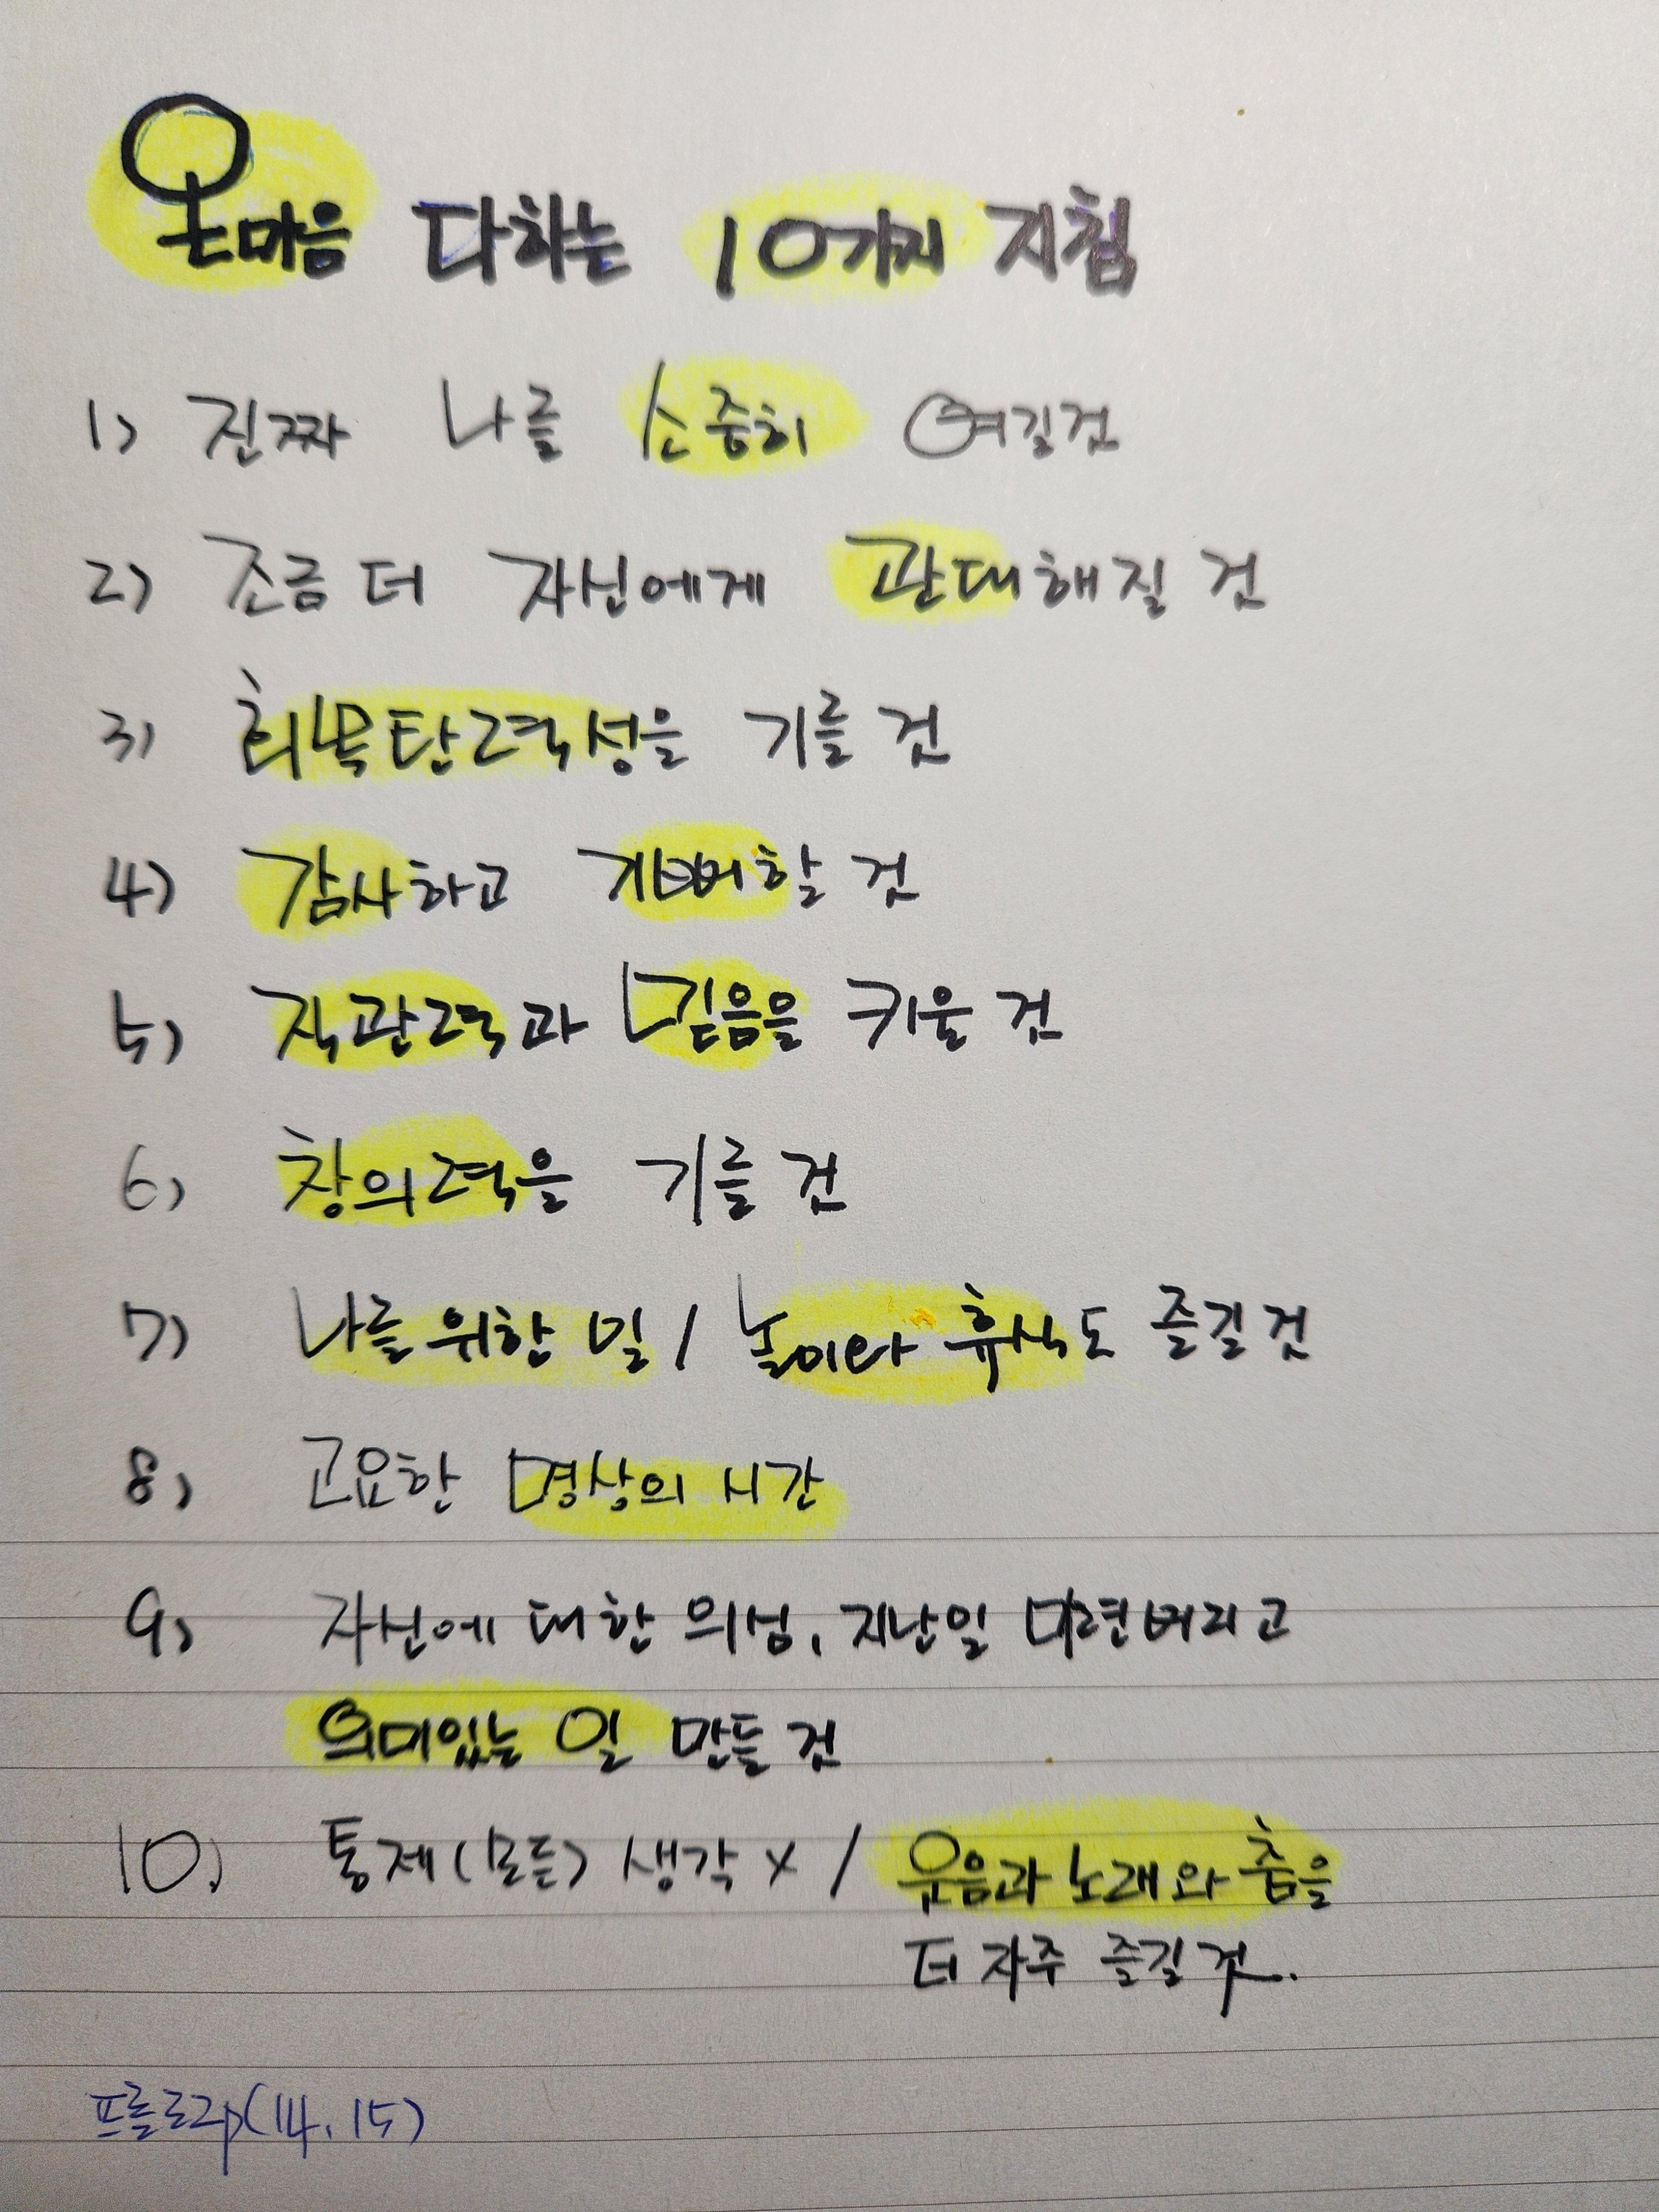 온마음 다하는 10가지 지침
1) 진짜 나를 소중히 여길 것
2) 조금 더 자신에게 관대해질 것
3) 회복탄력성을 기를 것
4) 감사하고 기뻐할 것
5) 직관력과 믿음을 키울 것
6) 창의력을 기를 것
7) 나를 위한 일 / 놀이와 휴식도 즐길 것
8) 고요한 명상의 시간
9) 자신에 대한 의심, 지난일 미련버리고
의미있는 일 만들 것
10) 통제(모든) 생각 x / 웃음과 노래와 춤을
더 자주 즐길 것.
프롤로그 p(14, 15)